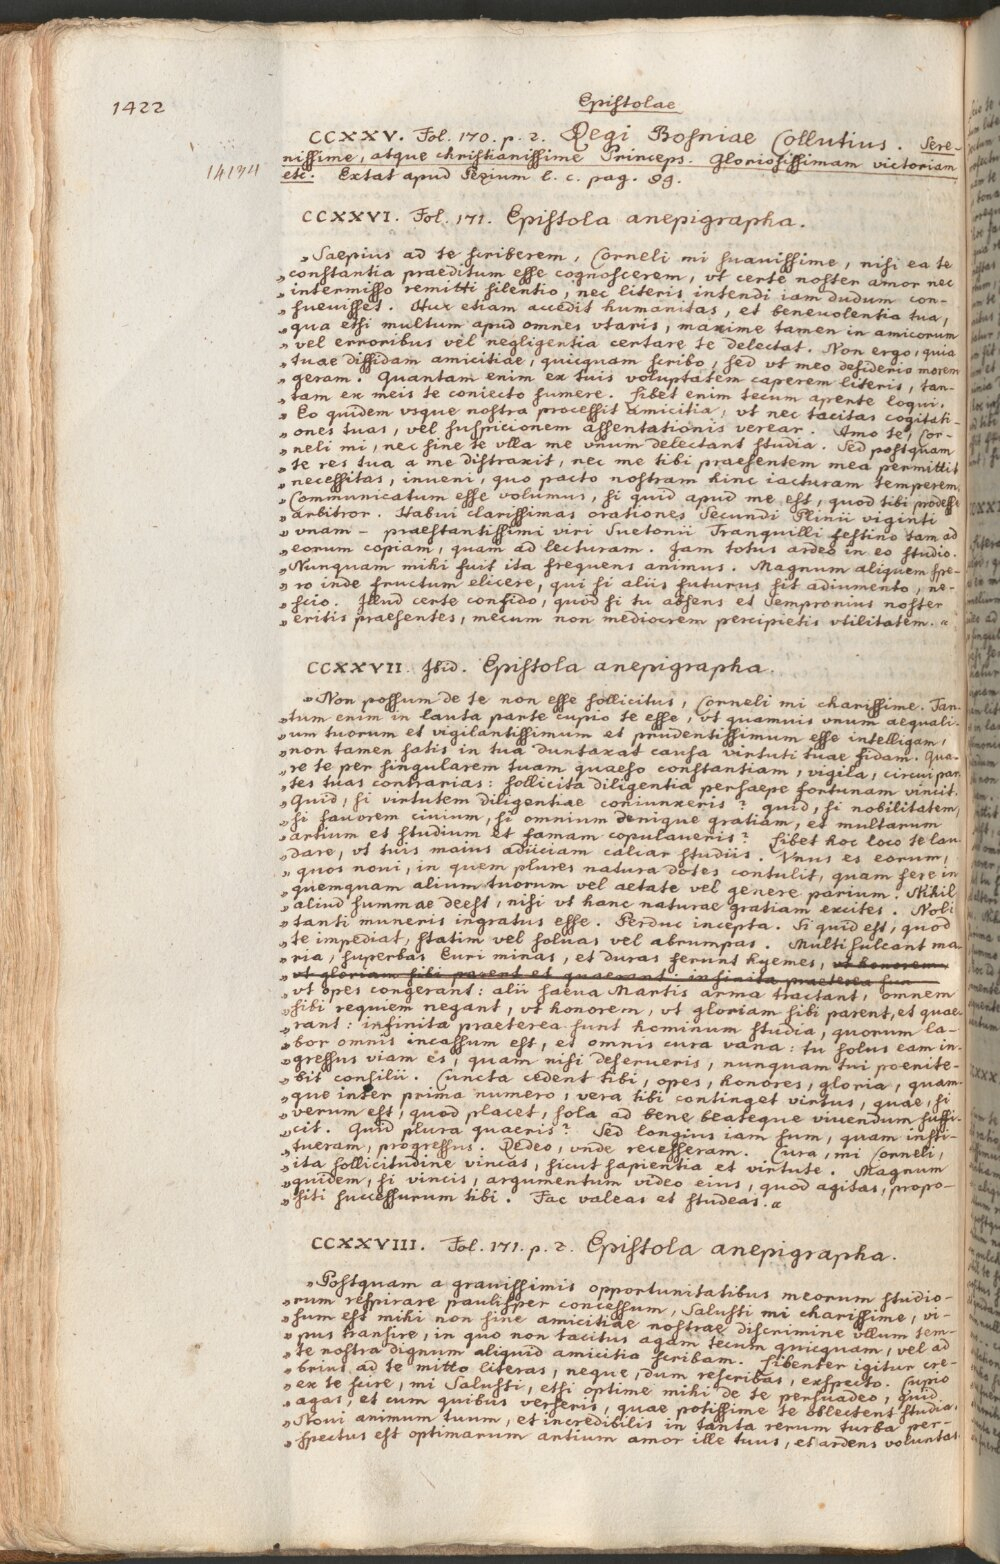 1422
Epistolae
CCXXV. Fol. 170. p. 2. Regi Bosniae Collutius. Sere-
nissime, atque christianissime Princeps. Gloriosissimam victoriam
etc. Extat apud Pezium l. c. pag. 89.
CCXXVI. Fol. 171. Epistola anepigrapha.
„Saepius ad te scriberem, Corneli mi suauissime, nisi ea te
„constantia praeditum esse cognoscerem, vt certe noster amor nec
„intermisso remitti silentio, nec literis intendi iam dudum con-
„sueuisset. Huc etiam accedit humanitas, et beneuolentia tua,
„qua etsi multum apud omnes vtaris, maxime tamen in amicorum
„vel erroribus vel negligentia certare te delectat. Non ergo, quia
„tuae diffidam amicitiae, quicquam scribo, sed vt meo desiderio morem
„geram. Quantam enim ex tuis voluptatem caperem literis, tan-
„tam ex meis te coniecto sumere. Libet enim tecum aperte loqui.
„Eo quidem vsque nostra processit amicitia, vt nec tacitas cogitati-
„ones tuas, vel suspicionem assentationis verear. Amo te, Cor-
„neli mi, nec sine te vlla me vnum delectant studia. Sed postquam
„te res tua a me distraxit, nec me tibi praesentem mea permittit
„necessitas, inueni, quo pacto nostram hinc iacturam temperem.
„Communicatum esse volumus, si quid apud me est, quod tibi prodesse
„arbitror. Habui clarissimas orationes Secundi Plinii viginti
„vnam - praestantissimi viri Suetonii Tranquilli festino tam ad
„eorum copiam, quam ad lecturam. Iam totus ardeo in eo studio.
„Nunquam mihi fuit ita frequens animus. Magnum aliquem spe-
„ro inde fructum elicere, qui si aliis futurus sit adiumento, ne-
„scio. Illud certe confido, quod si tu absens et Sempronius noster
„eritis praesentes, mecum non mediocrem percipietis vtilitatem. “
CCXXVII. Ibid. Epistola anepigrapha.
„Non possum de te non esse sollicitus, Corneli mi charissime. Tan-
„tum enim in lauta parte cupio te esse, vt quamuis vnum aequali-
„um tuorum et vigilantissimum et prudentissimum esse intelligam,
„non tamen satis in tua duntaxat causa virtuti tuae fidam. Qua-
„re te per singularem tuam quaeso constantiam, vigila, circui par-
„tes tuas contrarias: sollicita diligentia persaepe fortunam vincit.
„Quid, si virtutem diligentiae coniunxeris? quid, si nobilitatem,
„si fauorem ciuium, si omnium denique gratiam, et multarum
„artium et studium et famam copulaueris? Libet hoc loco te lau-
„dare, vt tuis maius adiiciam calcar studiis. Vnus es eorum,
„quos noui, in quem plures natura dotes contulit, quam fere in
„quemquam alium tuorum vel aetate vel genere parium. Nihil
„aliud summae deest, nisi vt hanc naturae gratiam excites. Noli
„tanti muneris ingratus esse. Perduc incepta. Si quid est, quod
„te impediat, statim vel soluas vel abrumpas. Multi sulcant ma-
„ria, superbas Euri minas, et duras ferunt hyemes, vt honorem,
„vt gloriam sibi parent et quaerant: infinita praeterea sun
„vt opes congerant: alii saeua Martis arma tractant, omnem
„sibi requiem negant, vt honorem, vt gloriam sibi parent, et quae-
„rant: infinita praeterea sunt hominum studia, quorum la-
„bor omnis incassum est, et omnis cura vana: tu solus eam in-
„gressus viam es, quam nisi deserueris, nunquam tui poenite-
„bit consilii. Cuncta cedent tibi, opes, honores, gloria, quam-
„que inter prima numero, vera tibi continget virtus, quae, si
„verum est, quod placet, sola ad bene beateque viuendum suffi-
„cit. Quid plura quaeris? Sed longius iam sum, quam insti-
„tueram, progressus. Redeo, vnde recesseram. Cura, mi Corneli,
„ita sollicitudine vincas, sicut sapientia et virtute. Magnum
„quidem, si vincis, argumentum video eius, quod agitas, propo-
„siti successurum tibi. Fac valeas et studeas. “
CCXXVIII. Fol. 171. p. 2. Epistola anepigrapha.
„Postquam a grauissimis opportunitatibus meorum studio-
„rum respirare paulisper concessum, Salusti mi charissime, vi-
„sum est mihi non sine amicitiae nostrae discrimine vllum tem-
„pus transire, in quo non tacitus agam tecum quicquam, vel ad
„te nostra dignum aliquid amicitia scribam. Libenter igitur cre-
„brius ad te mitto literas, neque, dum rescribas, exspecto. Cupio
„ex te scire, mi Salusti, etsi optime mihi de te persuadeo, quid
„agas, et cum quibus verseris, quae potissime te oblectent studia.
„Noui animum tuum, et incredibilis in tanta rerum turba per-
„spectus est optimarum artium amor ille tuus, et ardens voluntas